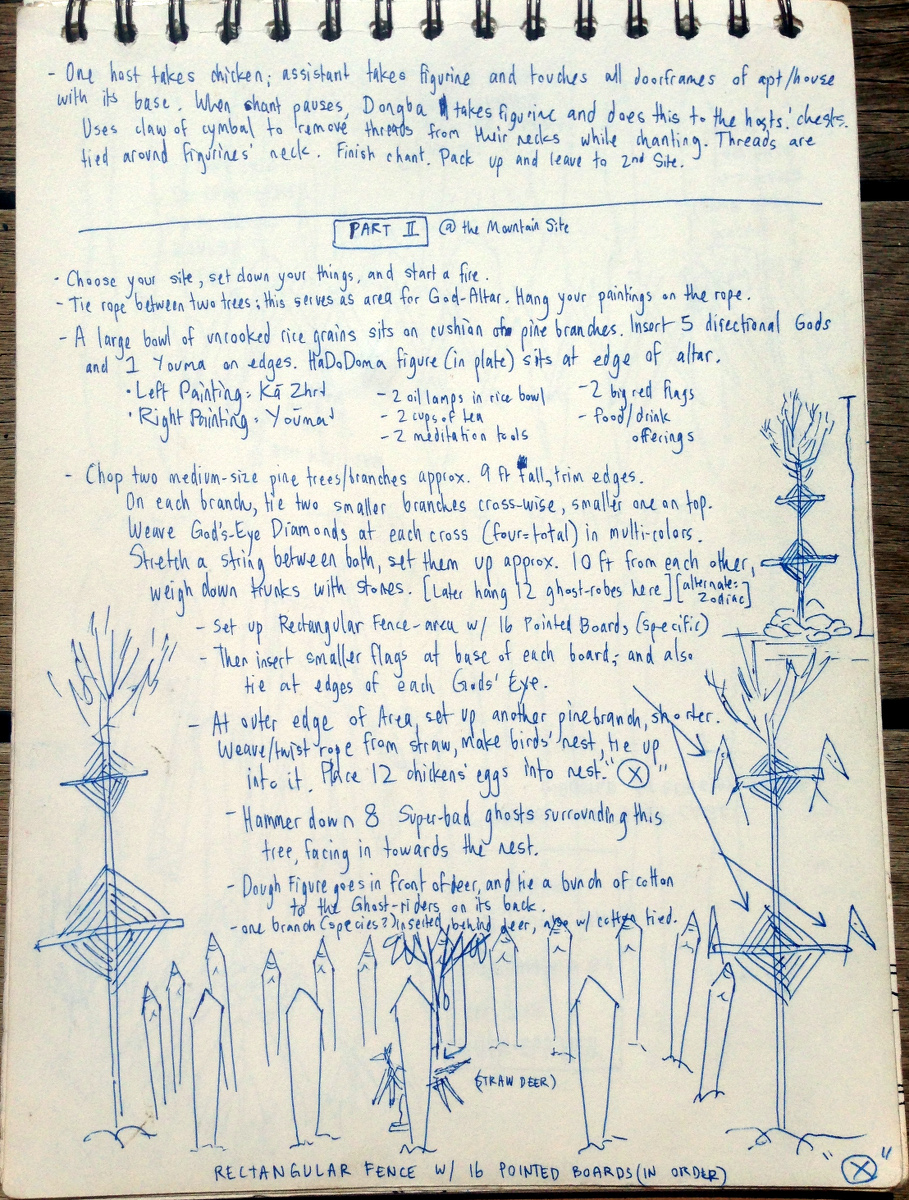 - One host takes chicken; assistant takes figurine and touches all doorframes of apt/house
with its base. When chant pauses, Dongba takes figurine and does this to the hosts' chests.
Uses claw of cymbal to remove threads from their necks while chanting. Threads are
tied around figurines' neck. Finish chant. Pack up and leave to 2nd Site.
PART II @ the Mountain Site
- Choose your site, set down your things, and start a fire.
- Tie rope between two trees; this serves as area for God-Altar. Hang your paintings on the rope.
- A large bowl of uncooked rice grains sits on cushion of pine branches. Insert 5 directional Gods
and 1 Youma on edges. HaDoDoma figure (in plate) sits at edge of altar.
· Left Painting: Kā Zhrɨ
· Right Painting: Yōuma
- 2 oil lamps in rice bowl
- 2 cups of tea
- 2 meditation tools
- 2 big red flags
- food/drink
offerings
- Chop two medium-size pine trees/branches approx. 9 ft tall, trim edges.
On each branch, tie two smaller branches cross-wise, smaller one on top.
Weave God's-Eye Diamonds at each cross (four=total) in multi-colors.
Stretch a string between both, set them up approx. 10 ft from each other,
weigh down trunks with stones. [Later hang 12 ghost-robes here] [alternate:
Zodiac]
- Set up Rectangular Fence-area w/ 16 Pointed Boards, (specific)
- Then insert smaller flags at base of each board; and also
tie at edges of each Gods' Eye.
- At outer edge of Area, set up another pine branch, shorter.
Weave/twist rope from straw, make birds' nest, tie up
into it. Place 12 chickens' eggs into nest. "X"
- Hammer down 8 Super-bad ghosts surrounding this
tree, facing in towards the nest.
- Dough Figure goes in front of deer, and tie a bunch of cotton
to the Ghost-riders on its back.
- one branch (species?) inserted behind deer, also w/ cotton tied.
(STRAW DEER)
RECTANGULAR FENCE W/ 16 POINTED BOARDS (IN ORDER)
"X"